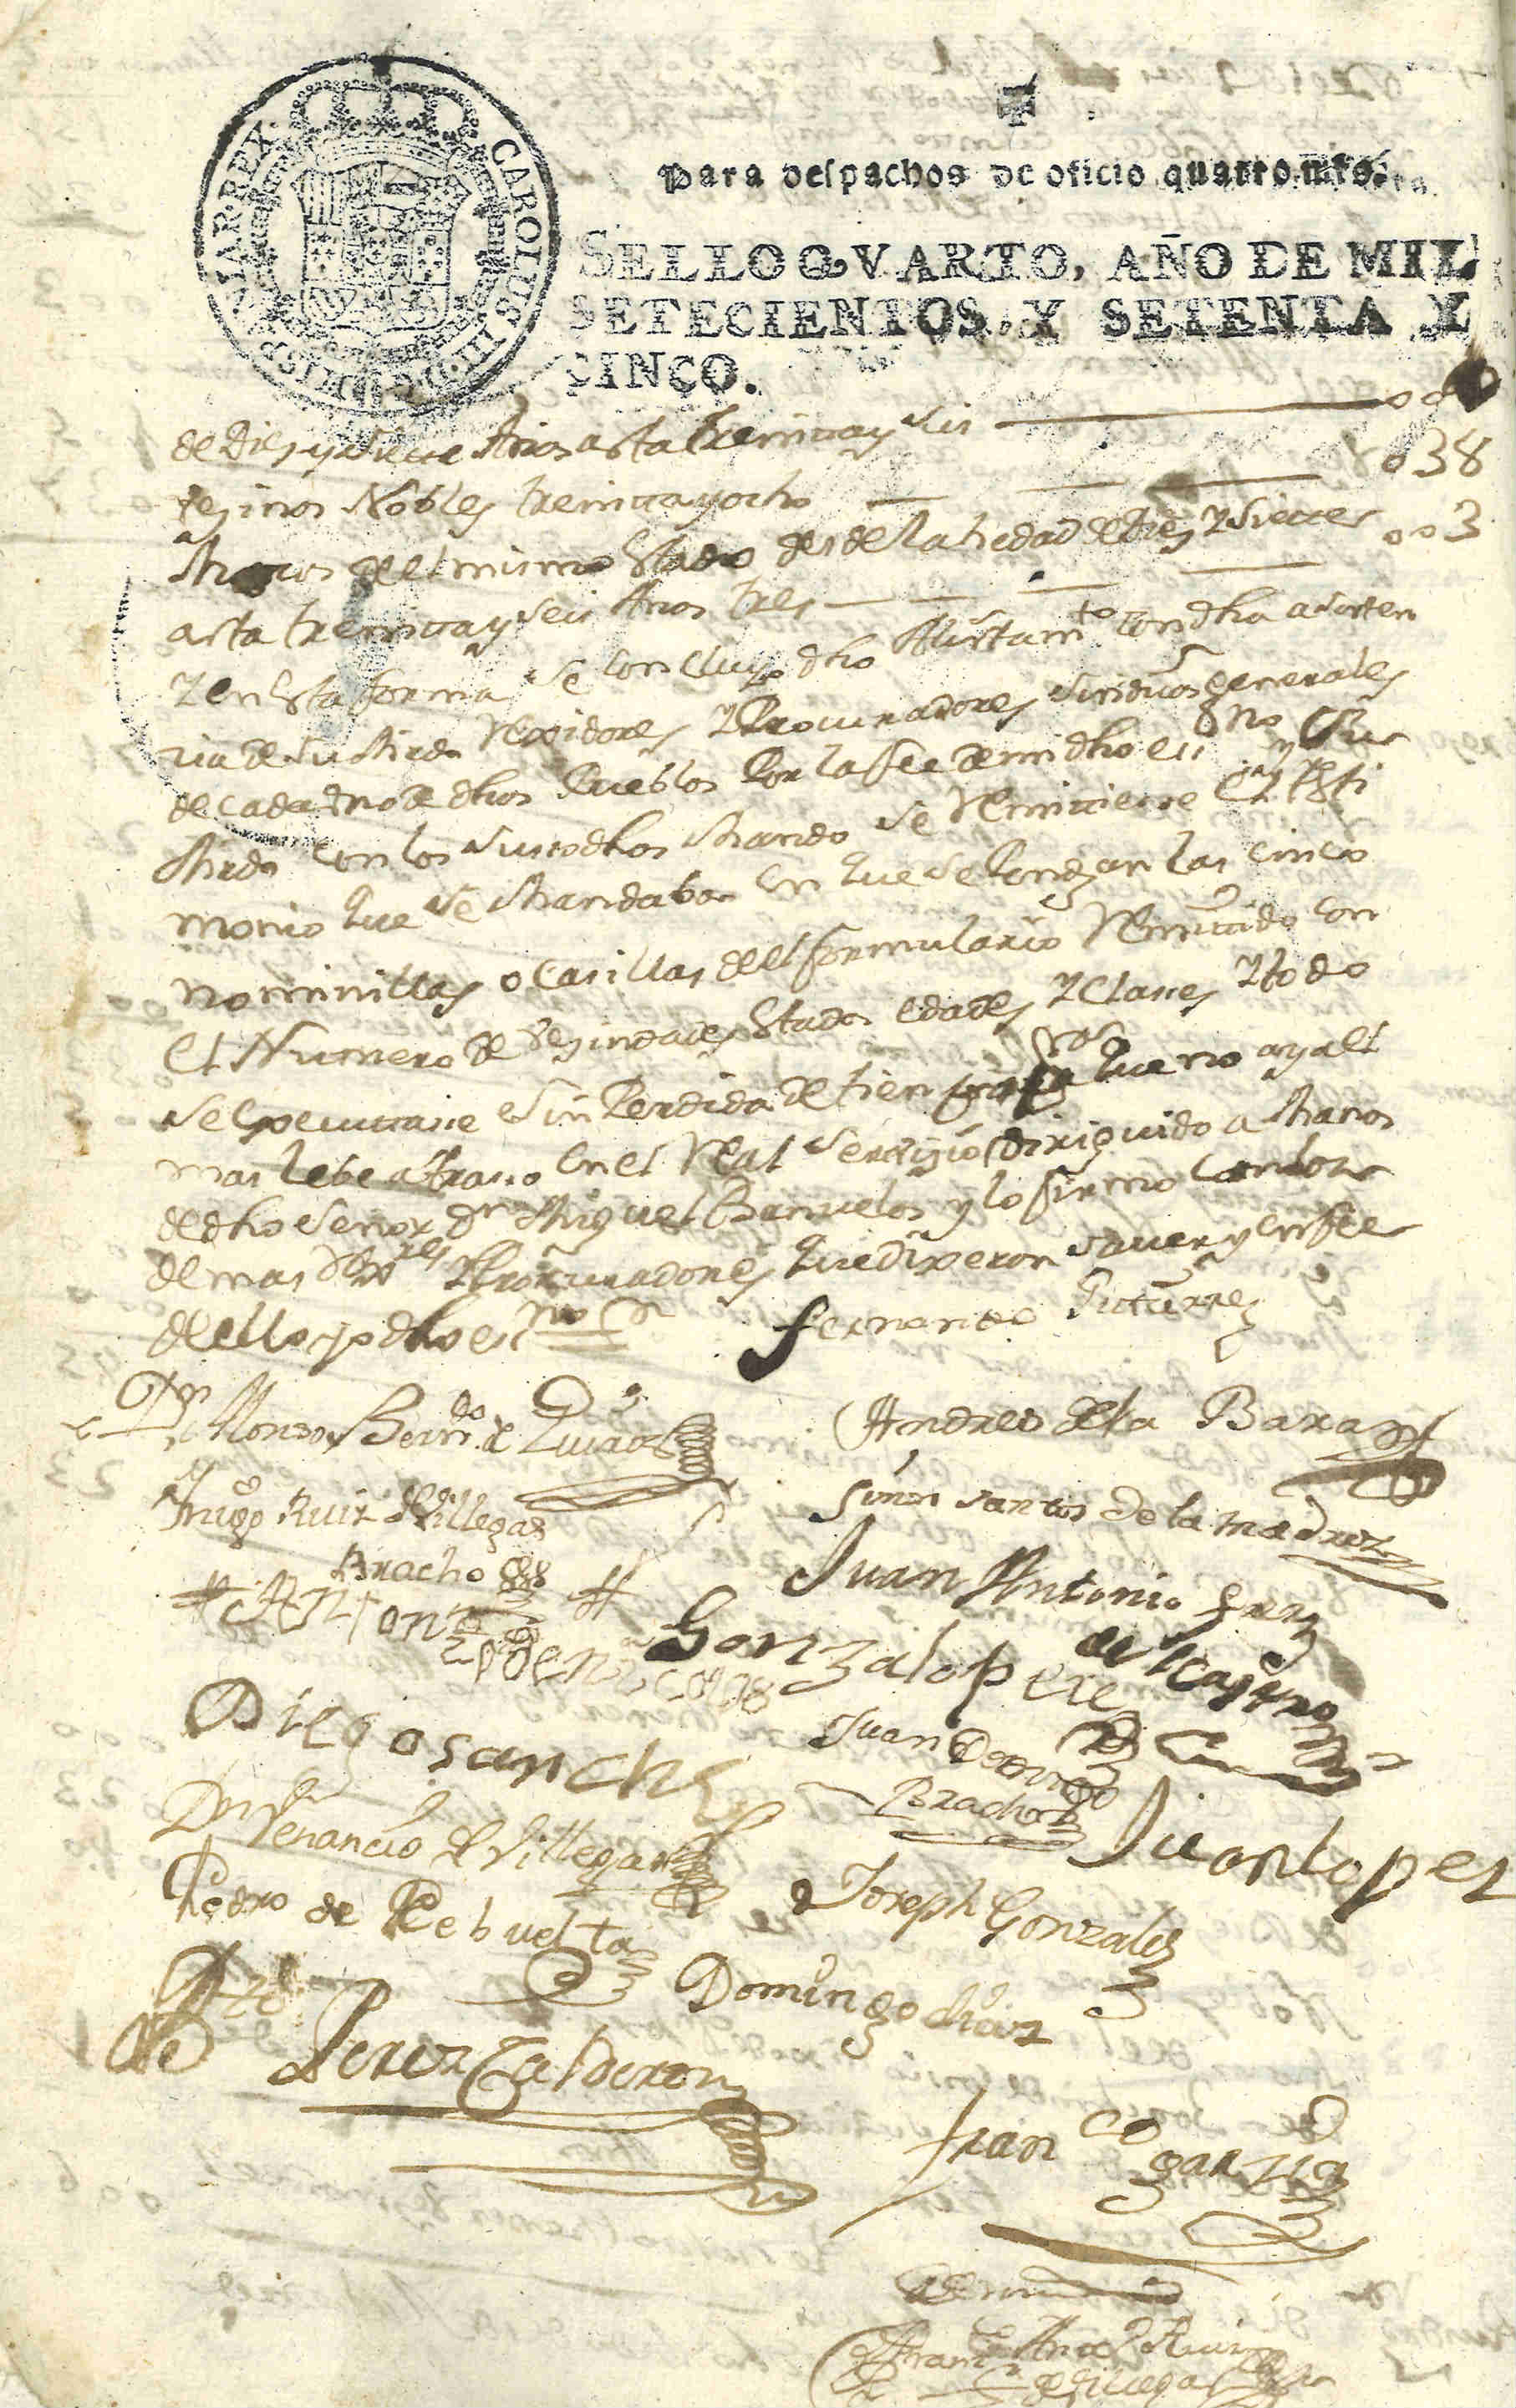 CAROLUS III D G HISPANIAR REX
Para despachos de oficio quatro mrs.
SELLO QVARTO, AÑO DE MIL
SETECIENTOS, Y SETENTA Y
CINCO.
de Diez y Siete Anos asta treintta y seis
vezinos Nobles treintta y ocho 038
Mozos del mismo Estado desde la hedad de diez y Siette 003
asta treintta y seis Anos tres
Y en Esta forma se Concluyo dho Alistamto con dha asisten
zia de su Mrd Rexidores y Procuradores Sindicos generales
de cada uno de dhos Pueblos Por la fee de mi dho essno y Su
Mrd con los susodhos Mando se Remittiese el testi
monio que se Mandaba en que se Pongan las cinco
nominillas o Casillas del formulario Remitido con
el Numero de Vezindades Estados edades y Clases y todo
se Executtase sin Perdida de tiempo que no aya el
mas lebe atraso en el Real Servizio diriguido a Manos
de dho Senor Dn Miguel Banuelos y lo firmo con los
demas Rexres y Procuradores que dixeron saver y en fee
de ello yo dho essno
Fernando Gutierrez
Dn Alonso Berndo de Quiros
Andres de la Bara
Hugo Ruiz de Villegas
Bracho
Simon santos de la madrez
Juan Antonio frnz
de Castro
Antonio
Gonzalo perez
Diego sanchez
Juan
Bracho
Dn Venancio de Villegas
Juan lopez
Pedro de Rebuelta
Joseph Gonzalez
Domingo diez
Perez Calderon
Franco garzia
Ante mi
Franco Anto Ruiz
de Villegas